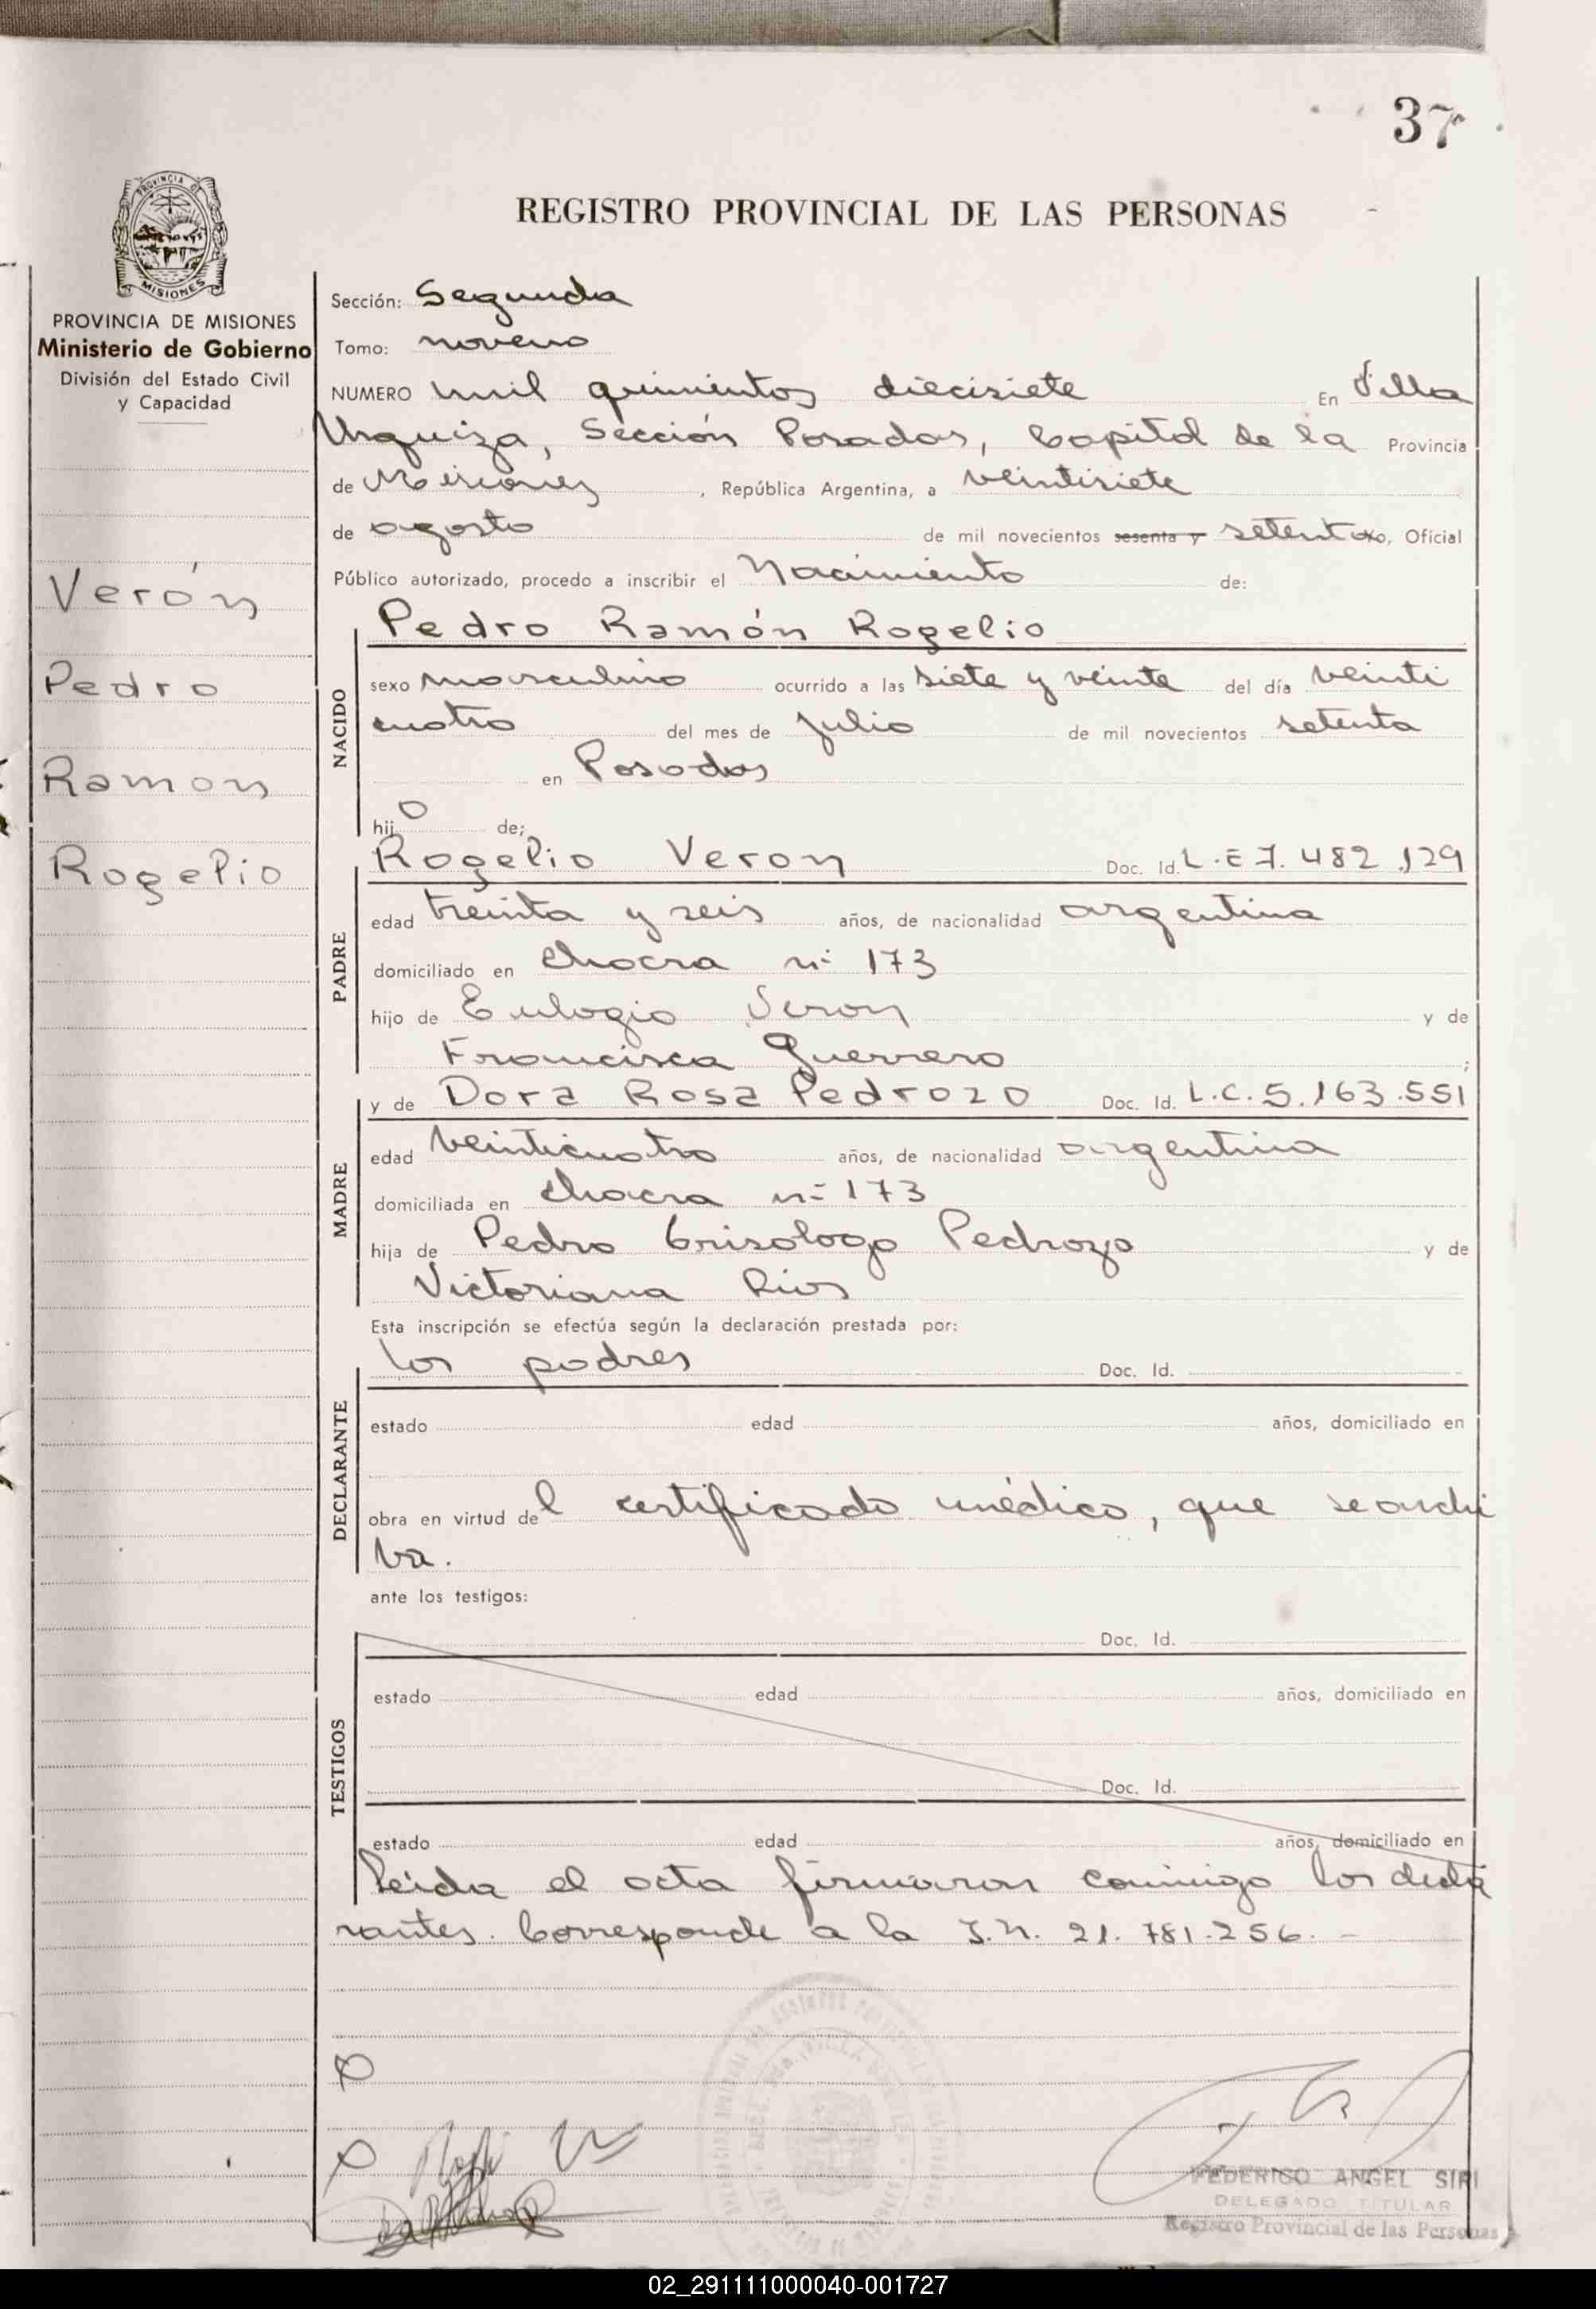 37
REGISTRO PROVINCIAL DE LAS PERSONAS
PROVINCIA DE
MISIONES
PROVINCIA DE MISIONES
Ministerio de Gobierno
División del Estado Civil
y Capacidad
Verón
Pedro
Ramon
Rogelio
Sección: Segunda
Tomo: noveno
NUMERO mil quinientos diecisiete En Villa
Urquiza, Sección Posadas, Capital de la Provincia
de Misiones, República Argentina, a veintisiete
de agosto de mil novecientos sesenta y setenta, Oficial
Público autorizado, procedo a inscribir el Nacimiento de:
NACIDO
Pedro Ramón Rogelio
sexo masculino ocurrido a las siete y veinte del día veinti
cuatro del mes de julio de mil novecientos setenta
en Posadas
hijo de;
PADRE
Rogelio Veron Doc. Id. L.E 7.482.129
edad treinta y seis años, de nacionalidad argentina
domiciliado en chacra nº 173
hijo de Eulogio Veron y de
Francisca Guerrero;
MADRE
y de Dora Rosa Pedrozo Doc. Id. L.C.5.163.551
edad veinticuatro años, de nacionalidad argentina
domiciliada en chacra nº 173
hija de Pedro Crisologo Pedrozo y de
Victoriana Rios
Esta inscripción se efectúa según la declaración prestada por:
DECLARANTE
los padres Doc. Id.
estado edad años, domiciliado en
obra en virtud del certificado médico, que se archi
va.
ante los testigos:
TESTIGOS
Doc. Id.
estado edad años, domiciliado en
Doc. Id.
estado edad años, domiciliado en
Leida el acta firmaron conmigo los decla
rantes. Corresponde a la I.N. 21.781.256.-
FEDERICO ANGEL SIRI
DELEGADO TITULAR
Registro Provincial de las Personas
02_291111000040-001727